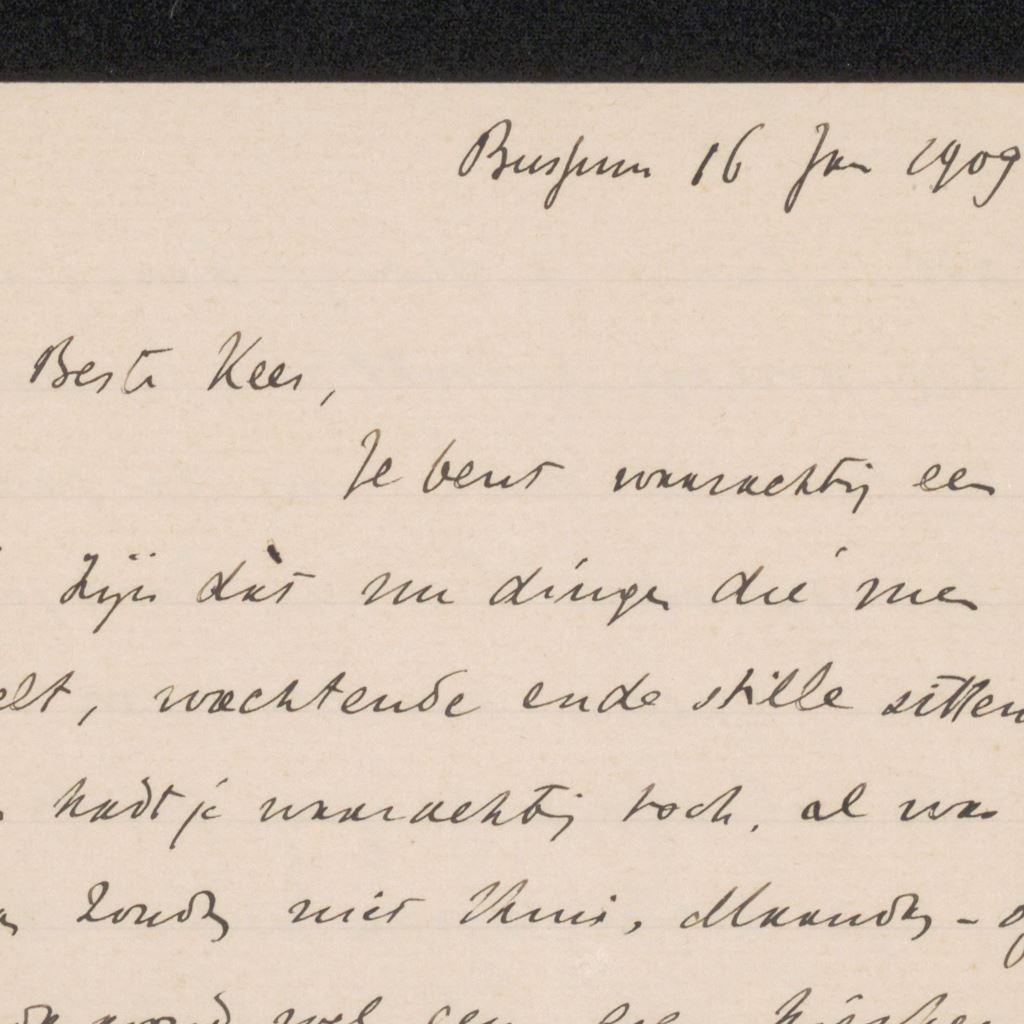 Bussum 16 Jan 1909
Beste Kees,
Je bent waarachtig een
Zijn dàt nu dingen die men
elt, wachtende ende stille sitten
hadt je waarachtig toch, al was
Zondag niet thuis, Maandag - of
wel een